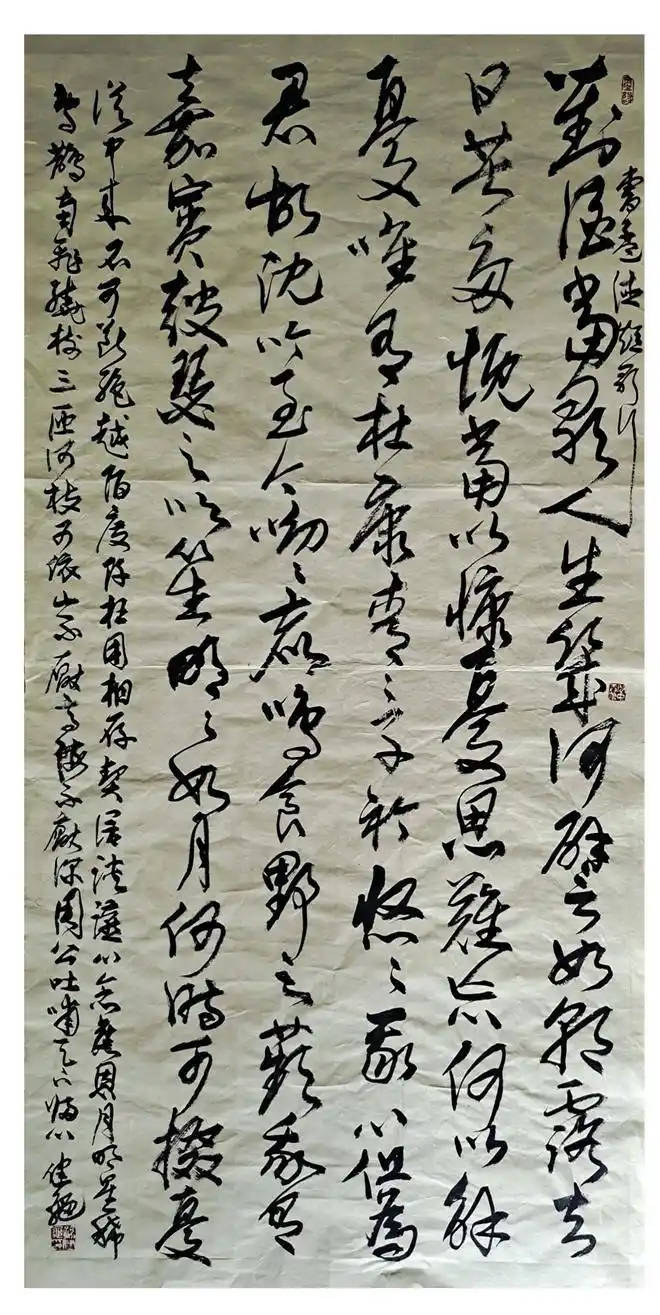 曹孟德短歌行
對酒當歌人生幾何譬如朝露去
日苦多慨當以慷憂思難忘何以解
憂唯有杜康青々子衿悠々我心但為
君故沈吟至今呦々鹿鳴食野之蘋我有
嘉賓鼓瑟之以笙明々如月何時可掇憂
從中來不可斷絕越陌度阡枉用相存契闊談讌心念舊恩月明星稀
烏鵲南飛繞樹三匝何枝可依山不厭高海不厭深周公吐哺天下歸心